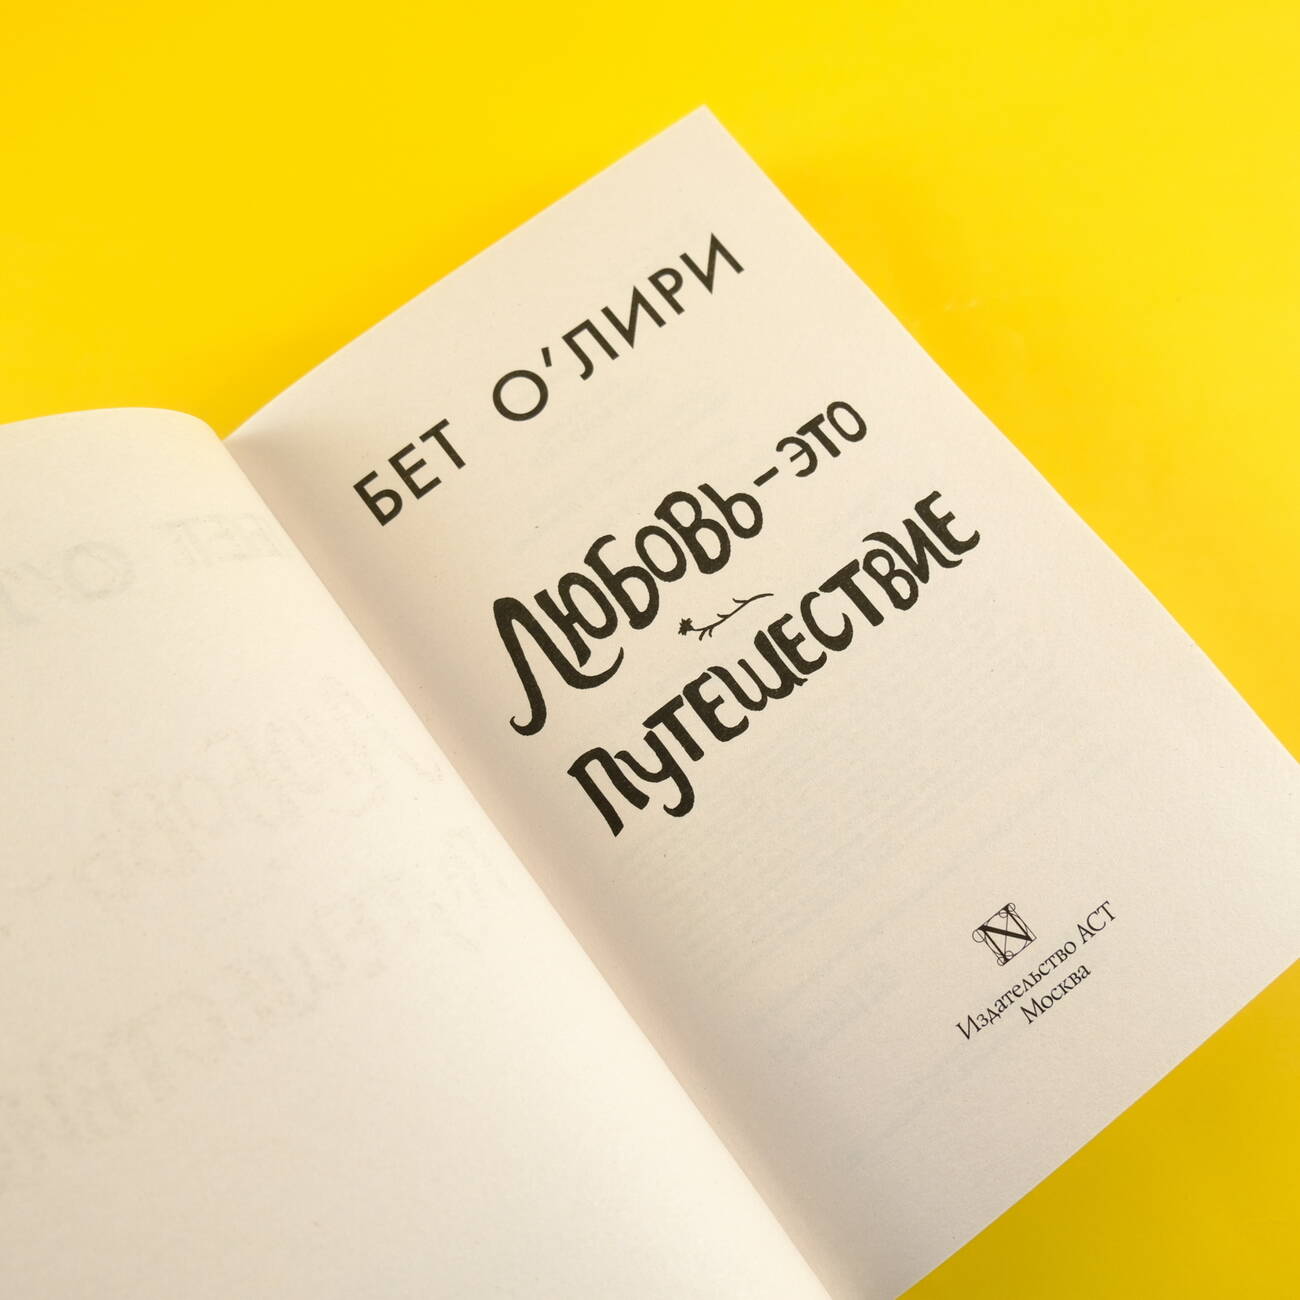 БЕТ О'ЛИРИ
ЛЮБОВЬ – ЭТО
ПУТЕШЕСТВИЕ
N
Издательство АСТ
Москва